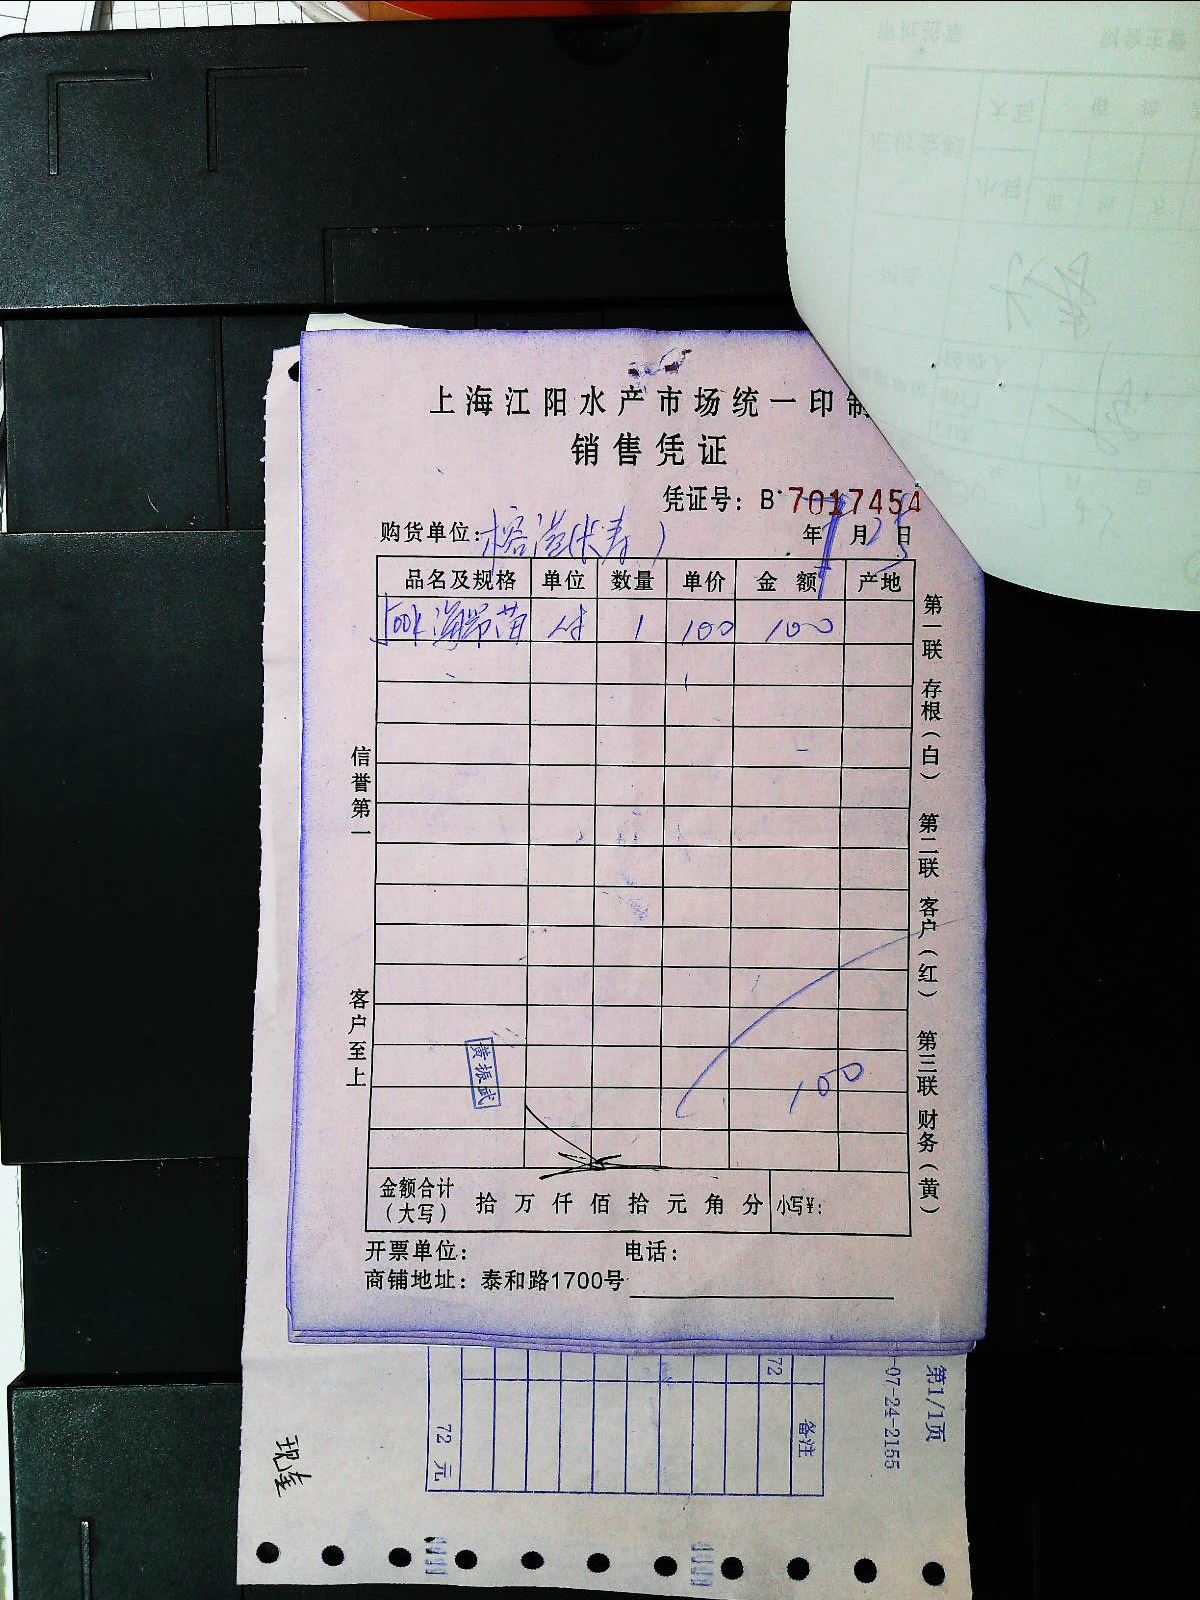 上海江阳水产市场统一印制
销售凭证
凭证号：B 7017454
购货单位：榕港(长寿) 年 7月25日
品名及规格 单位 数量 单价 金额 产地
海带苗 1 100 100
信誉第一
客户至上
第一联 存根（白） 第二联 客户（红） 第三联 财务（黄）
黄振武
100
金额合计（大写） 拾 万 仟 佰 拾 元 角 分 小写¥：
开票单位： 电话：
商铺地址：泰和路1700号
第1/1页
-07-24-2155
备注
72
72 元
现金